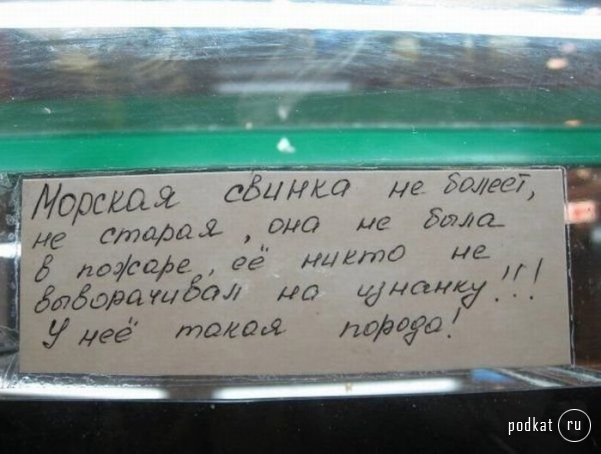 Морская свинка не болеет,
не старая, она не была
в пожаре, её никто не
выворачивал на изнанку!!!
У неё такая порода!
podkat ru